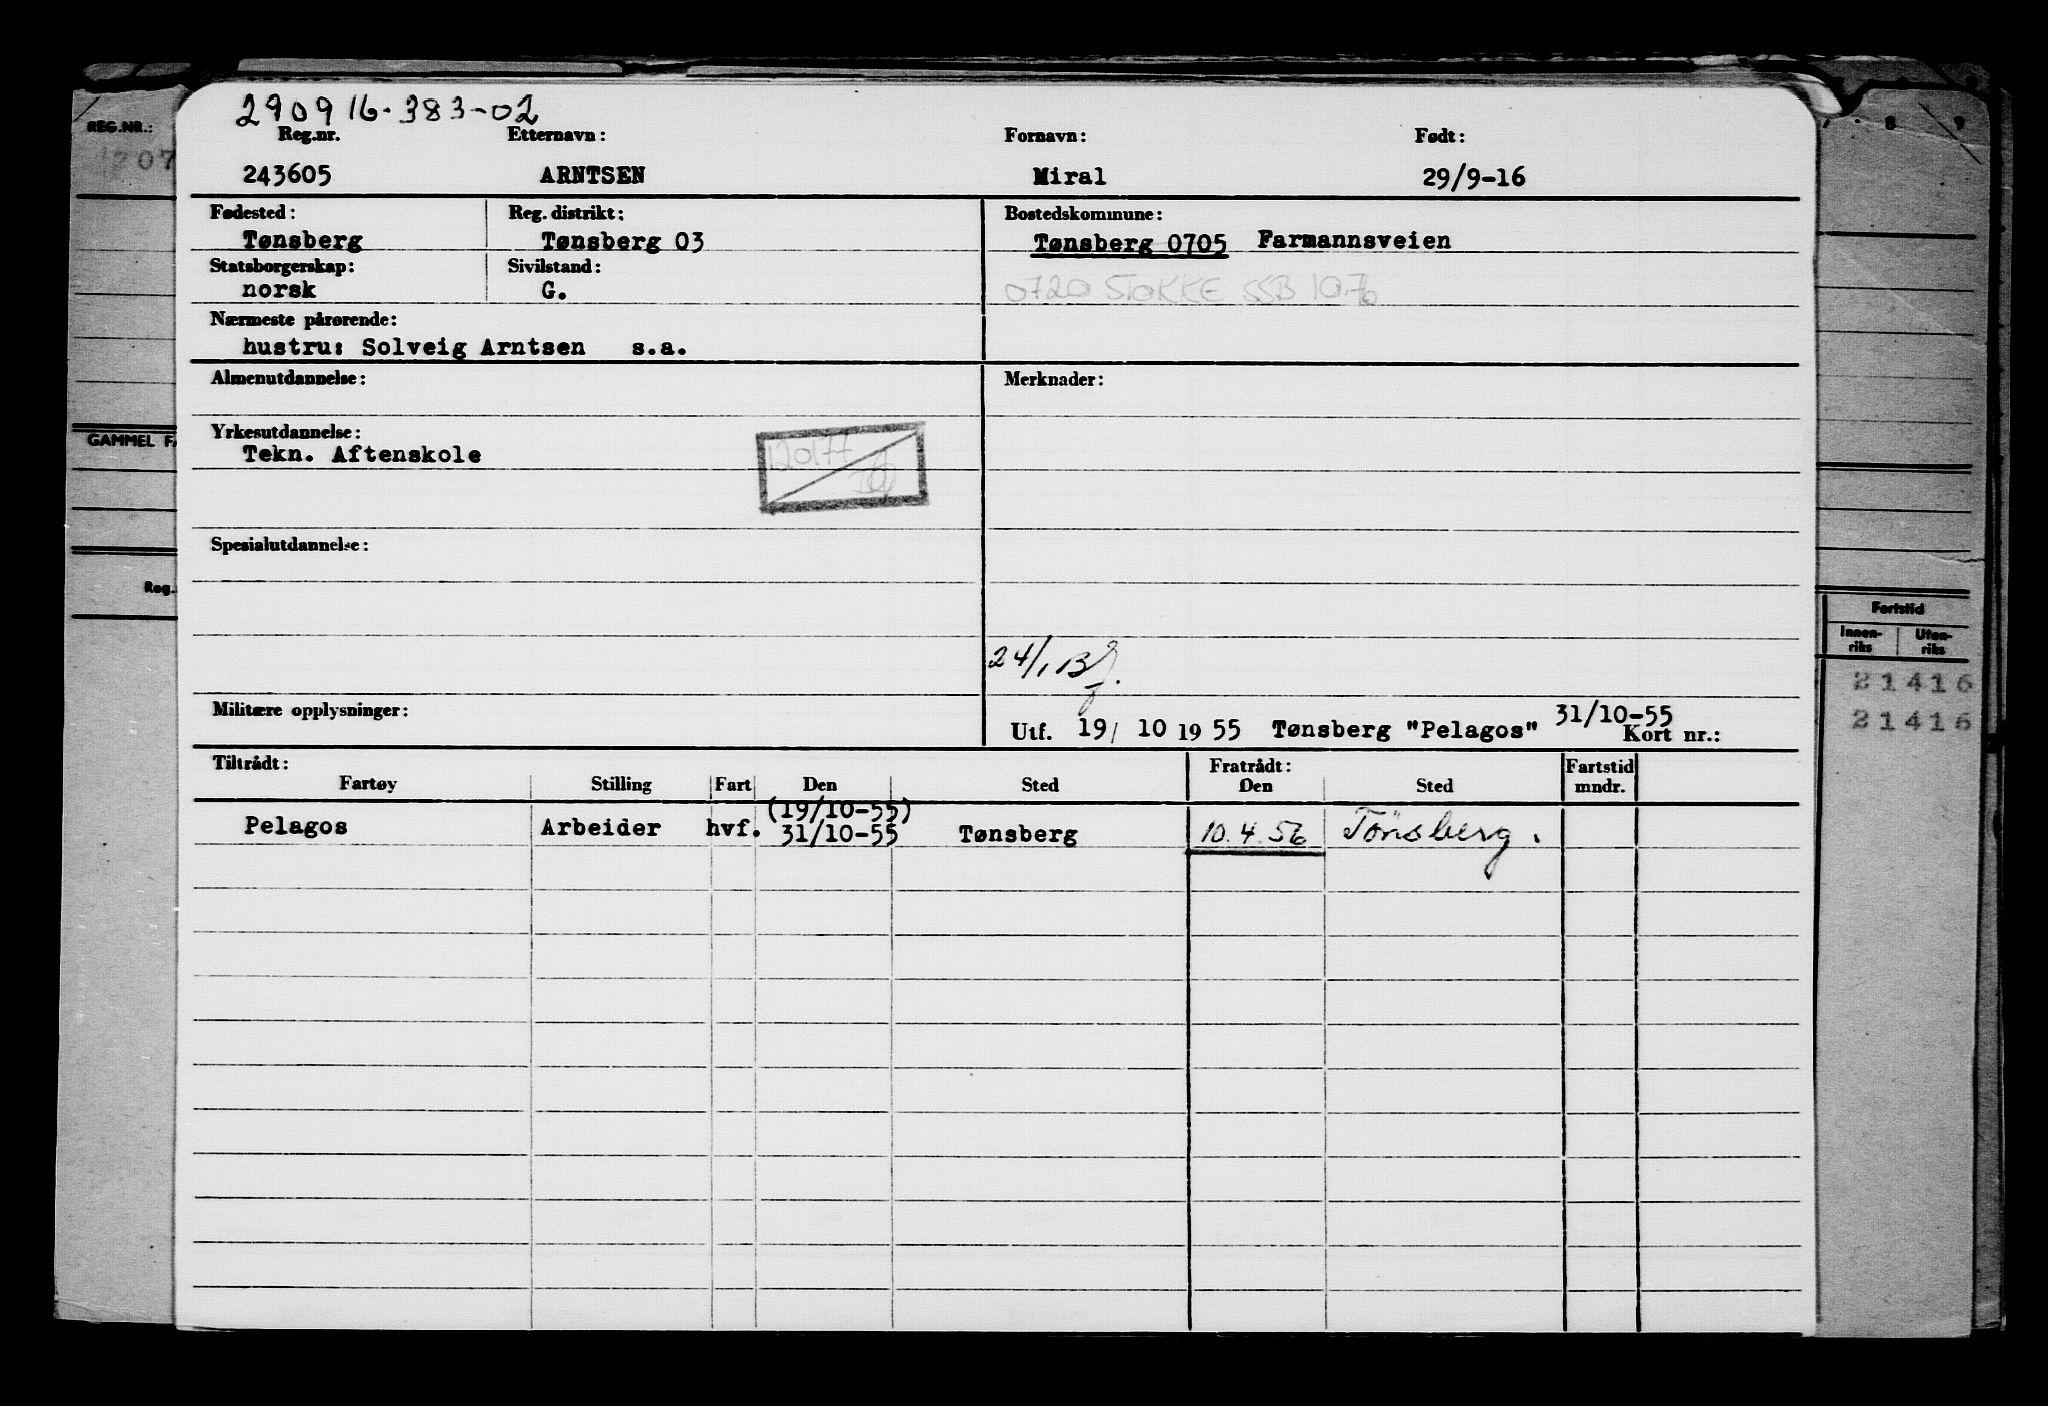 290916-383-02
REG.NR.:
207
Reg.nr. Etternavn: Fornavn: Født:
243605 ARNTSEN Miral 29/9-16
8 9
Fødested: Reg. distrikt: Bostedskommune:
Tønsberg Tønsberg 03 Tønsberg 0705 Farmannsveien
Statsborgerskap: Sivilstand:
norsk G. 0720 STOKKE SSB 10.76
Nærmeste pårørende:
hustru: Solveig Arntsen s.a.
Almenutdannelse: Merknader:
Yrkesutdannelse:
Tekn. Aftenskole
120177
GAMMEL FA
Spesialutdannelse:
Reg.
Fartstid
Innen-riks Uten-riks
21416
21416
24/1 Bj.
Militære opplysninger:
Utf. 19/ 10 19 55 Tønsberg "Pelagos" 31/10-55
Kort nr.:
Tiltrådt: Fratrådt: Fartstid
Fartøy Stilling Fart Den Sted Den Sted mndr.
(19/10-55)
Pelagos Arbeider hvf. 31/10-55 Tønsberg 10.4.56 Tönsberg.